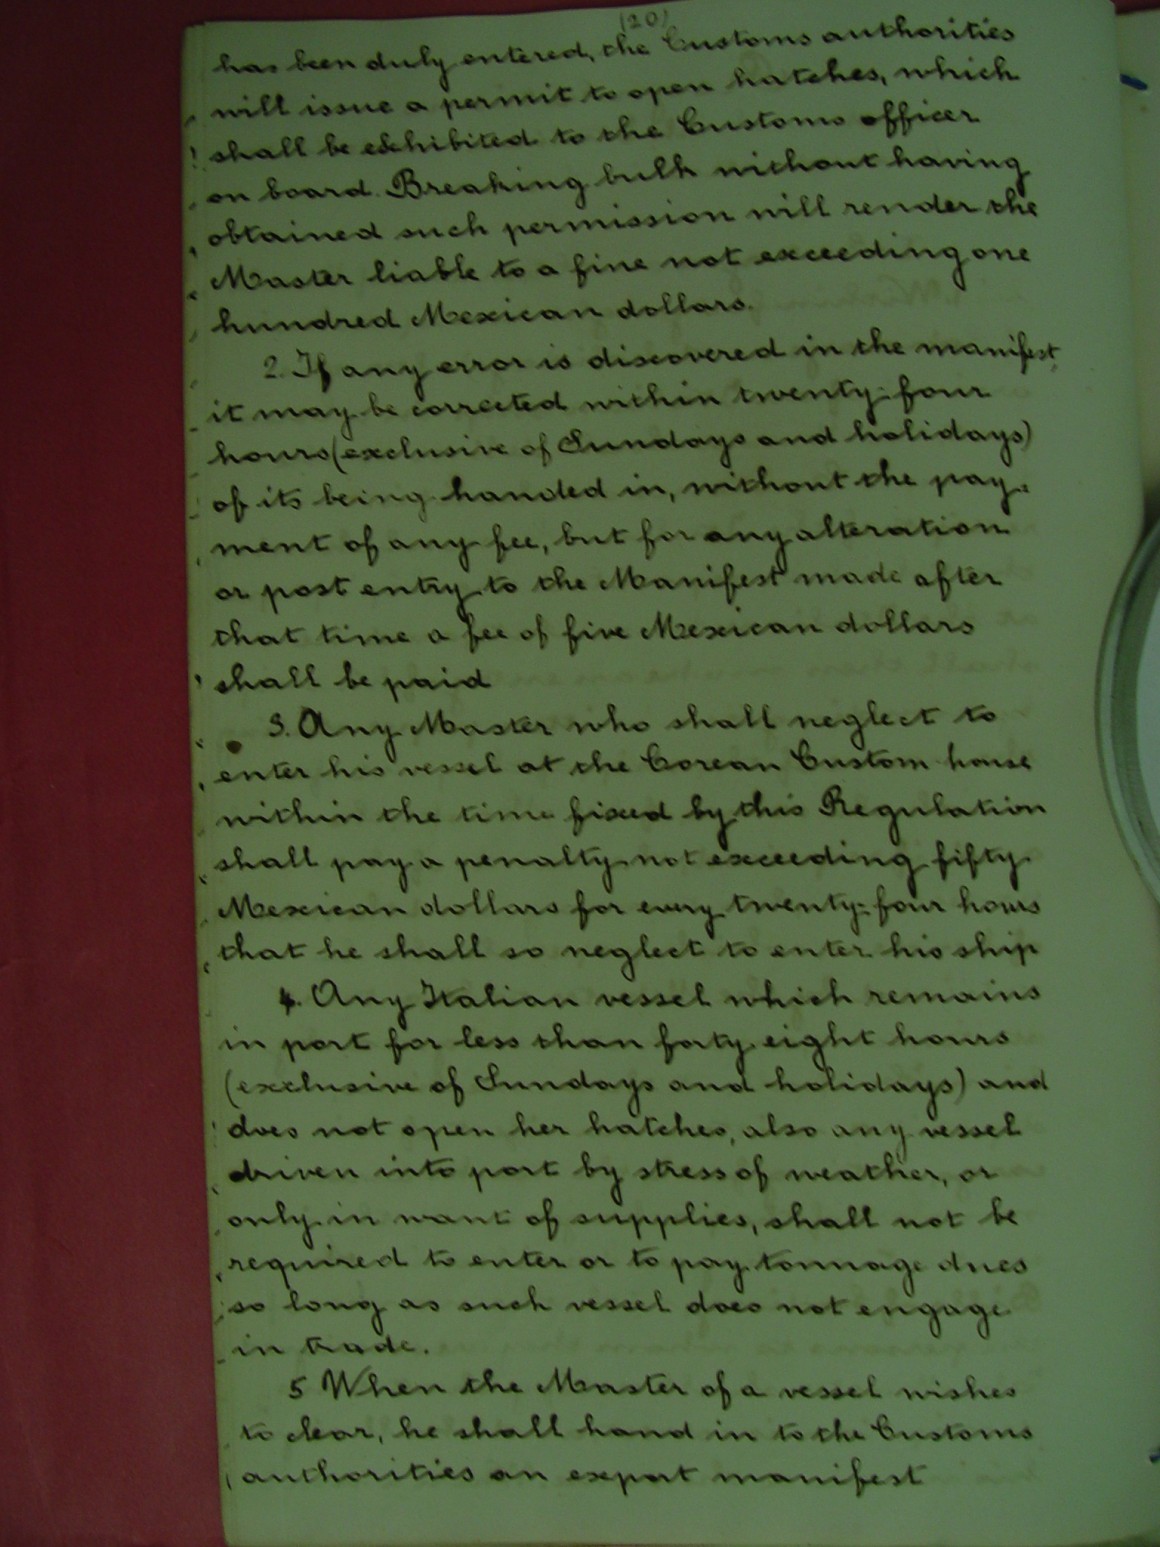 (20)
has been duly entered, the Customs authorities
will issue a permit to open hatches, which
shall be exhibited to the Customs officer
on board. Breaking bulk without having
obtained such permission will render the
Master liable to a fine not exceeding one
hundred Mexican dollars.
2. If any error is discovered in the manifest,
it may be corrected within twenty-four
hours (exclusive of Sundays and holidays)
of its being handed in, without the pay-
ment of any fee, but for any alteration
or post entry to the Manifest made after
that time a fee of five Mexican dollars
shall be paid
3. Any Master who shall neglect to
enter his vessel at the Corean Custom house
within the time fixed by this Regulation
shall pay a penalty not exceeding fifty
Mexican dollars for every twenty-four hours
that he shall so neglect to enter his ship
4. Any Italian vessel which remains
in port for less than forty eight hours
(exclusive of Sundays and holidays) and
does not open her hatches, also any vessel
driven into port by stress of weather, or
only in want of supplies, shall not be
required to enter or to pay tonnage dues
so long as such vessel does not engage
in trade.
5 When the Master of a vessel wishes
to clear, he shall hand in to the Customs
authorities an export manifest